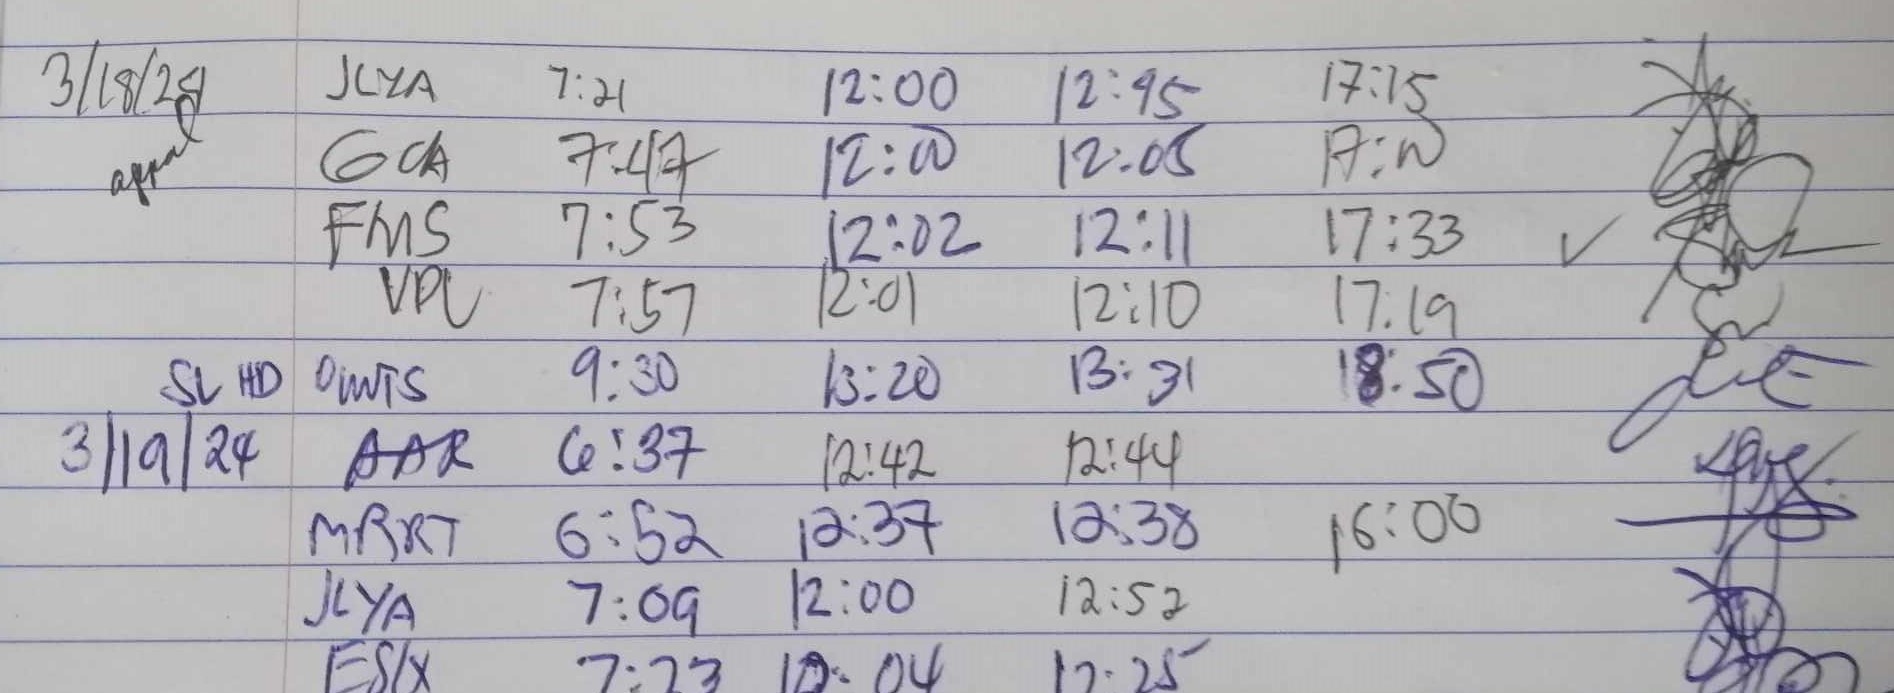 3/18/24 JLYA 7:21 12:00 12:45 17:15
GCA 7:47 12:00 12:05 17:10
FMS 7:53 12:02 12:11 17:33 ✓
VPL 7:57 12:01 12:10 17:19
SL HD 9:30 13:20 13:31 18:50
3/19/24 AAR 6:37 12:42 12:44
MRRT 6:52 12:37 12:38 16:00
JLYA 7:09 12:00 12:52
7:23 12:04 12:25